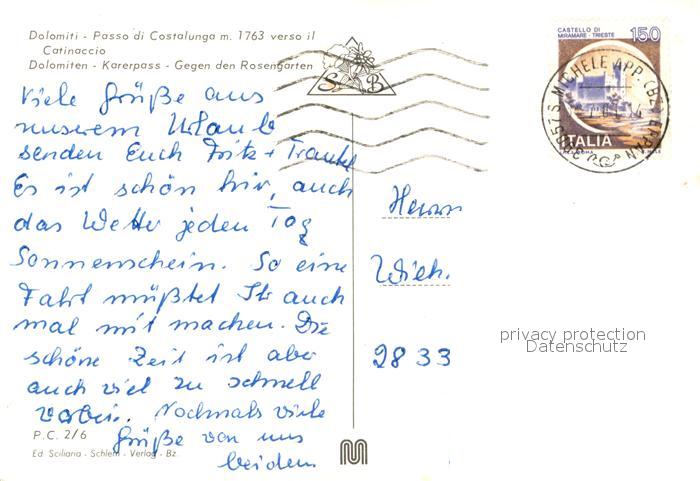 Dolomiti - Passo di Costalunga m. 1763 verso il
Catinaccio
Dolomiten - Karerpass - Gegen den Rosengarten
Viele Grüße aus
unserem Urlaub
senden Euch Fritz + Traudel
Es ist schön hier, auch
das Wetter jeden Tag
Sonnenschein. So eine
Fahrt müßtet Ihr auch
mal mit machen. Die
schöne Zeit ist aber
auch viel zu schnell
vorbei. Nochmals viele
Grüße von uns
beiden
P.C. 2/6
Ed Sciliana - Schlern - Verlag - Bz.
S B
CASTELLO DI
MIRAMARE - TRIESTE
150
ITALIA
S. MICHELE APP. (BZ) EPPAN
Herrn
Wieh.
2833
privacy protection
Datenschutz